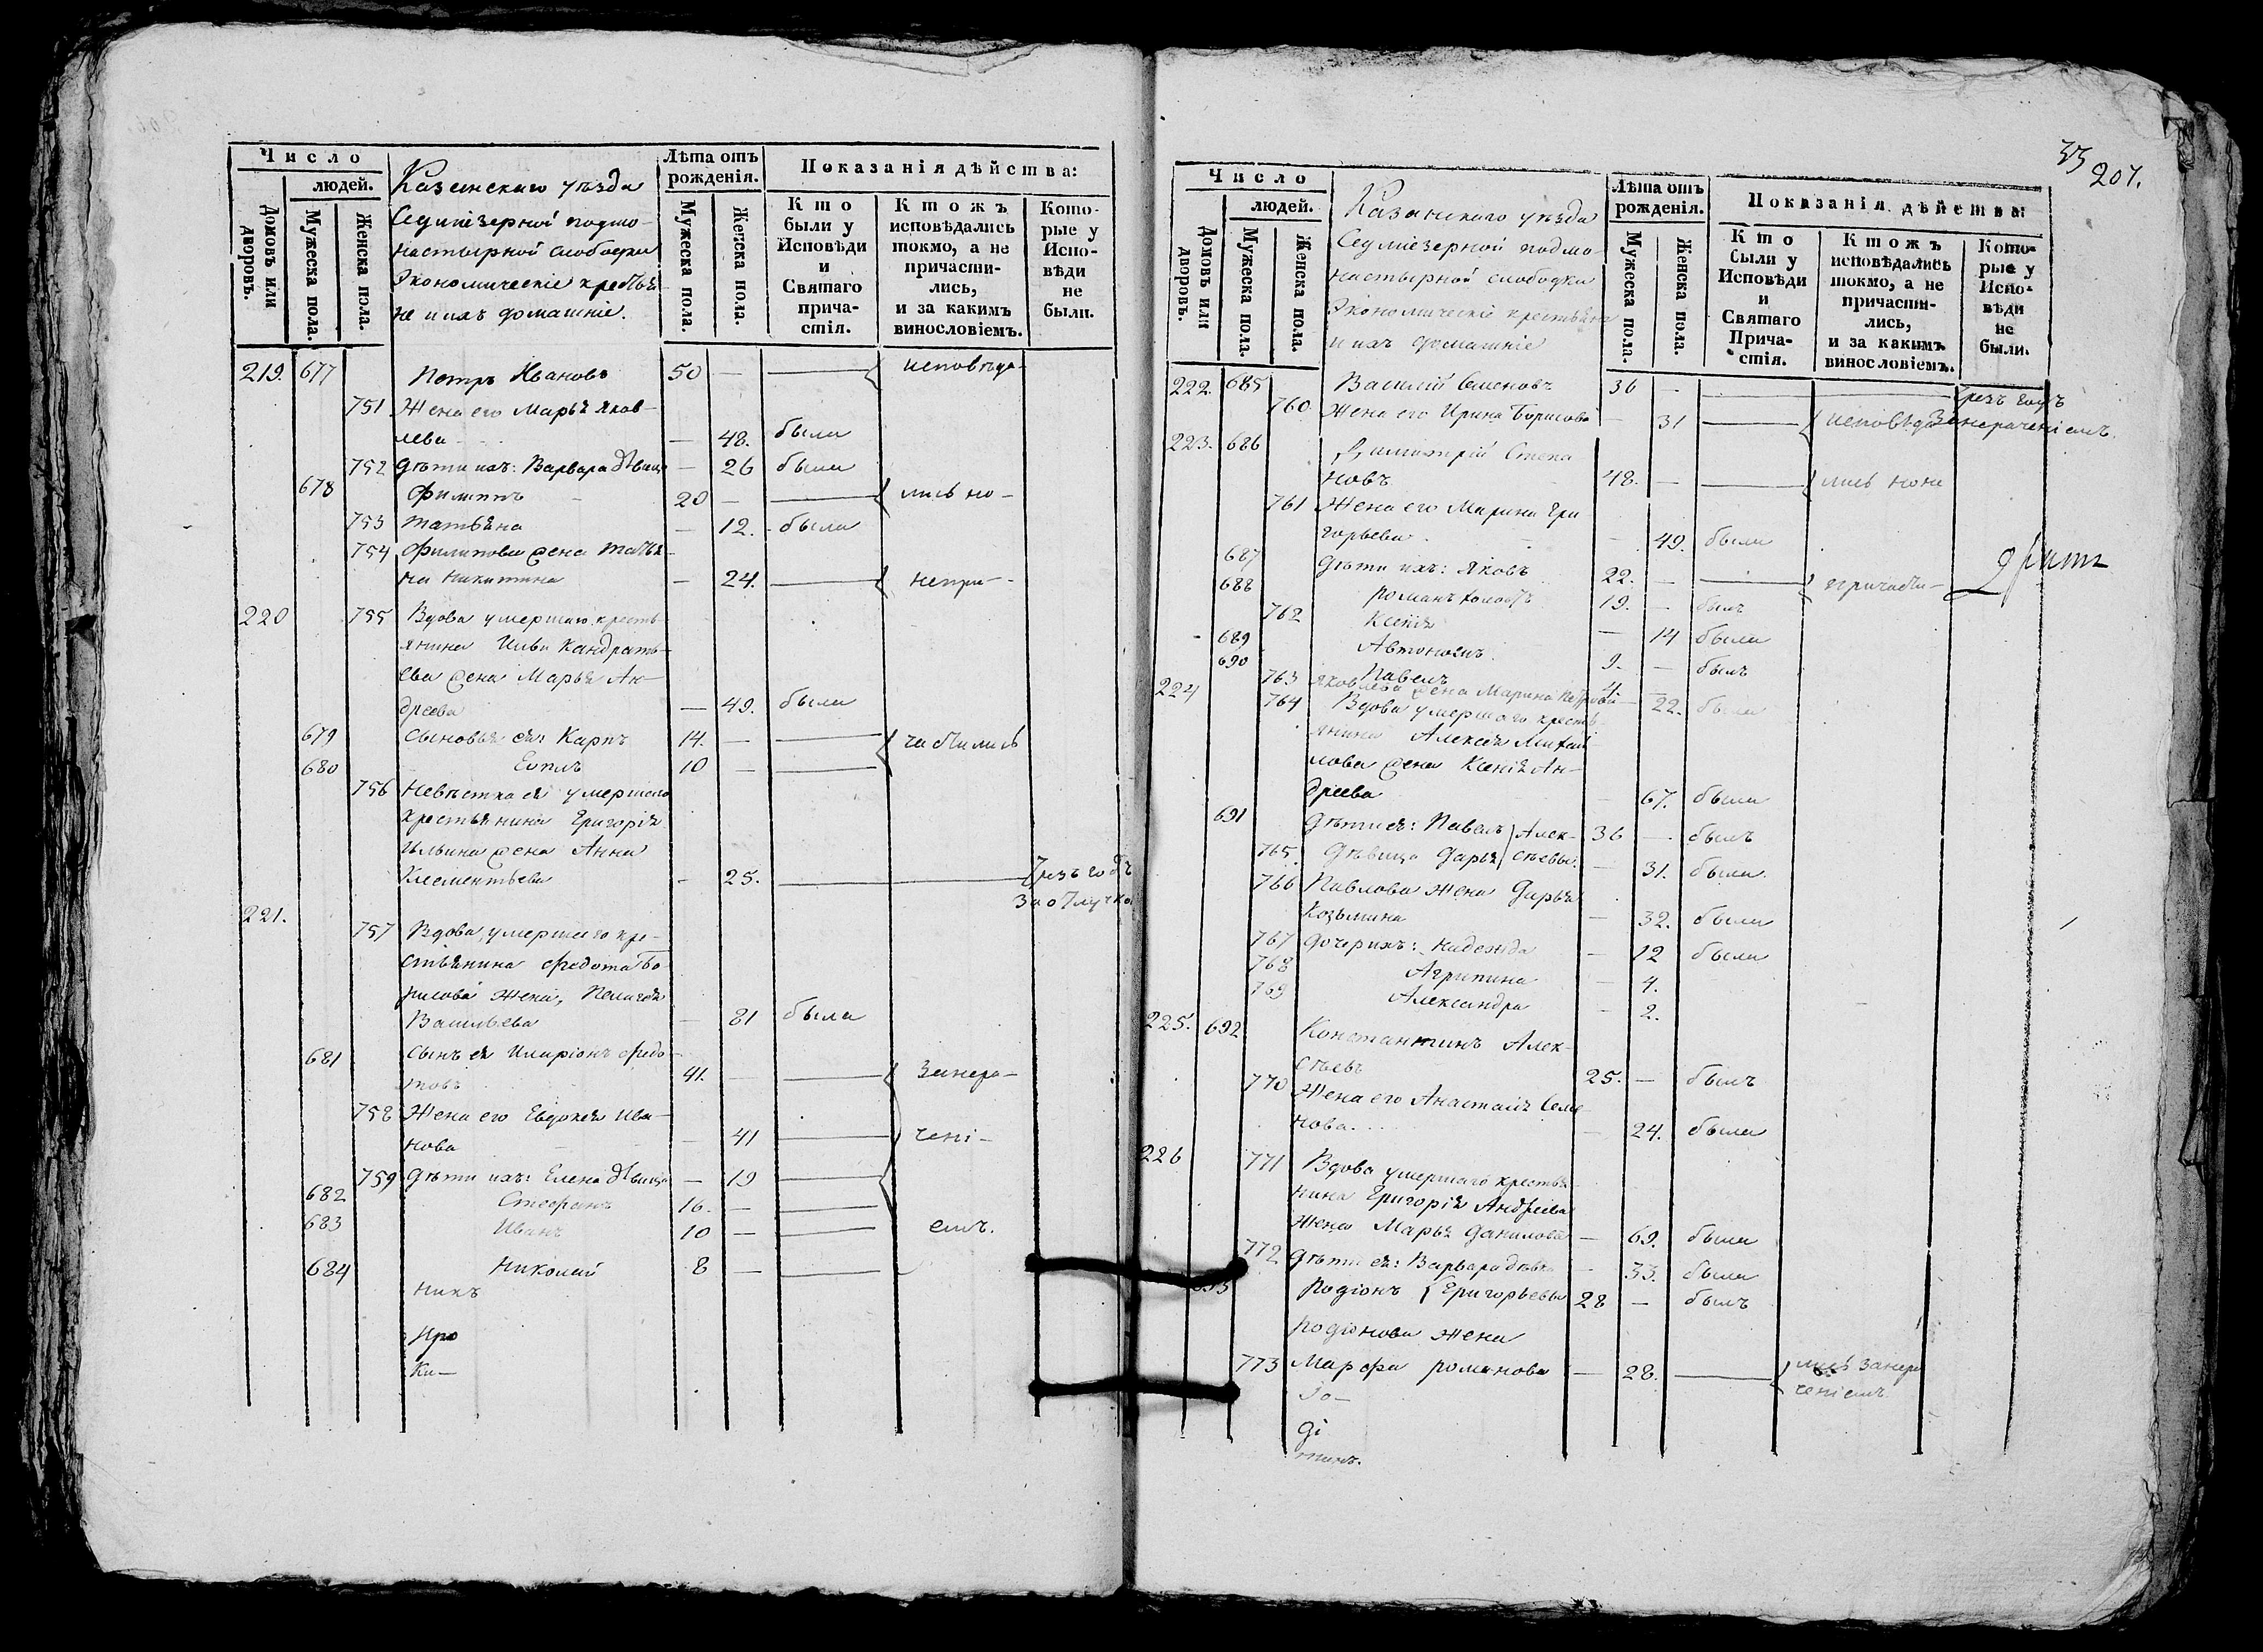 Число
людей.
Домовъ или дворовъ.
Мужеска пола.
Женска пола.
Казанскаго уѣзда
Седмiезерной подмо-
настырной слободки
Экономическiе крестья
не и ихъ домашнiе.
Лѣта отъ рожденiя.
Мужеска пола.
Женска пола.
Показанiя дѣйства:
Кто были у Исповѣди и Святаго прича-стiя.
Ктожъ исповѣдались токмо, а не причасти-лись, и за какимъ винословiемъ.
Кото-рые у Испо-вѣди не были.
219. 677 Петръ Ивановъ 50 — исповѣда-
751 Жена его Марья Яков-
лева — 48. была
752 Дѣти ихъ: Варвара дѣвица — 26 была
678 Филиппъ 20 — лись но-
753 Татьяна — 12. была
754 Филипова жена Татья-
на Никитина — 24. непри-
220 755 Вдова умершаго кресть-
янина Ильи Кандрать-
ева жена Марья Ан-
дреева — 49. была
679 Сыновья ея: Карпъ 14. — частились
680 Евплъ 10 —
756 Невѣстка ея умершаго
крестьянина Григорiя
Ильина жена Анна
Климентьева — 25. Чрезъ годъ
За отлучко
221. 757 Вдова, умершаго кре-
стьянина Федота Бо-
рисова жена, Пелагея
Васильева — 81 была
681 Сынъ ея Иларiонъ Федо-
товъ 41. — занера-
758 Жена его Евдокея Ива-
нова — 41 ченi-
759 Дѣти ихъ: Елена дѣвица — 19
682 Стефанъ 16. —
683 Иванъ 10 — емъ.
684 Николай 8 —
никъ
Про
Ки—
33
207.
Число
людей.
Домовъ или дворовъ.
Мужеска пола.
Женска пола.
Казанскаго уѣзда
Седмiезерной подмо-
настырной слободки
Экономическiе крестьяне
и ихъ домашнiе
Лѣта отъ рожденiя.
Мужеска пола.
Женска пола.
Показанiя дѣйства:
Кто были у Исповѣди и Святаго Прича-стiя.
Ктожъ исповѣдались токмо, а не причасти-лись, и за какимъ винословiемъ.
Кото-рые у Испо-вѣди не были.
222. 685 Василiй Семеновъ 36 — Чрезъ годъ
760 Жена его Ирина Борисова — 31 исповѣда Занераченiемъ.
223. 686 Димитрiй Степа
новъ 48. — лисьноне
761 Жена его Марина Гри
горьева — 49. была
687 Дѣти ихъ: Яковъ 22. — причасти—
688 Романъ холостъ 19. — былъ
762 Ксенiя — 14 была
689 Автономъ 9. — былъ
690 Павелъ 4. —
763 Яковлева жена Марина Петрова — 22. была
224 764 Вдова умершаго кресть-
янина Алексея Михай
лова жена Ксенiя Ан-
дреева — 67. была
691 Дѣти ея: Павелъ Алек- 36 — былъ
765. Дѣвица Дарья сѣевы. — 31. была.
766 Павлова жена Дарья
Козьмина — 32. была
767 Дочери ихъ: Надежда — 12 была
768 Агрипина — 4.
769 Александра — 2.
225. 692 Константинъ Алек-
сѣевъ 25. — былъ
770 Жена его Анастасiя Семе
нова. — 24. была
226 771 Вдова умершаго крестья-
нина Григорiя Андреева
жена Марья Данилова — 69. была
772 Дѣти ея: Варвара дѣвка — 33. была
Родiонъ Григорьевы 28 — былъ
Родiонова жена
773 Марфа Романова — 28. лись занера
ченiемъ
Iо—
дi
тинъ.